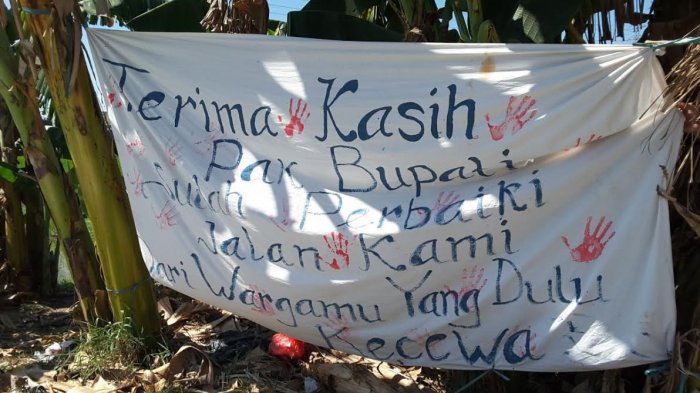 Terima Kasih
Pak Bupati
Sudah Perbaiki
Jalan Kami
Dari Wargamu Yang Dulu
Kecewa